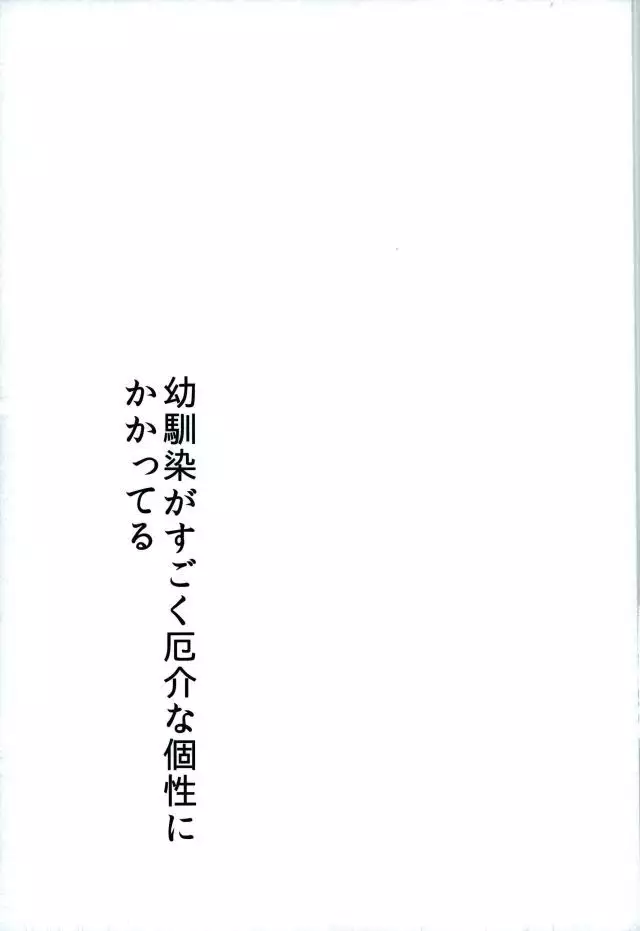 幼馴染がすごく厄介な個性に
かかってる